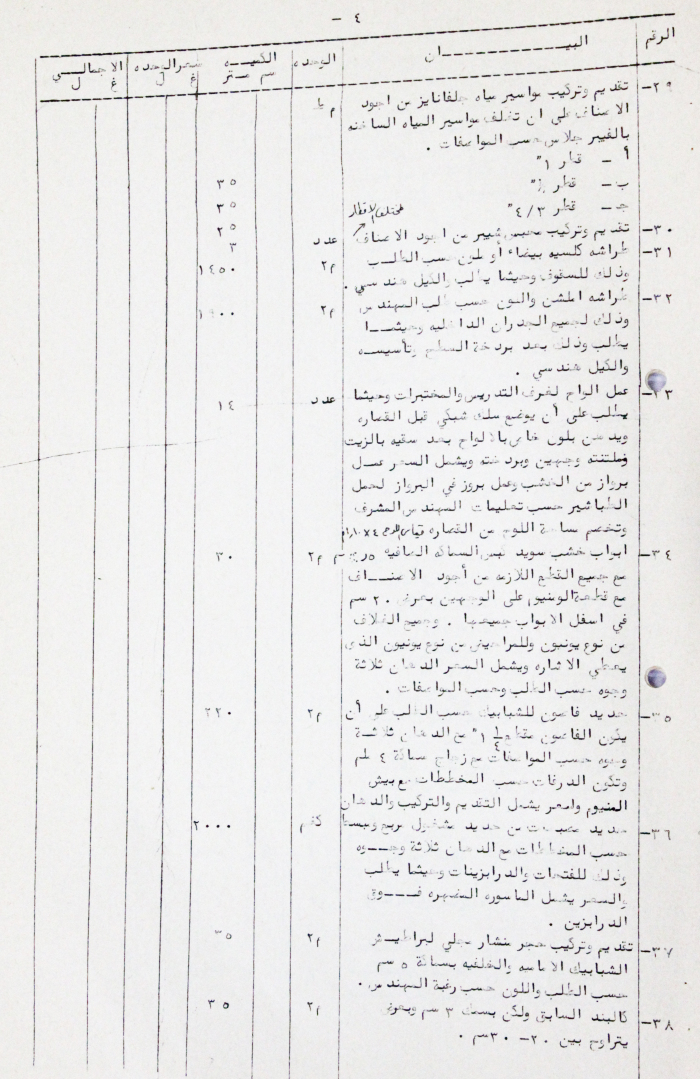 - ٤
الرقم البيــــــــان الوحده الكميــه سعر الوحده الاجمالــي
سم متر غ ل غ ل
٢٩- تقديم وتركيب مواسير مياه جلفانايز من اجود م ط
الاصناف على ان تغلف مواسير المياه الساخنه
بالفيبر جلاس حسب المواصفات .
أ - قطر ١" ٣٥
ب- قطر ½" ٣٥
ج- قطر ٣/٤" لمختلف الاقطار ٢٥
٣٠- تقديم وتركيب محبس شيبر من اجود الاصناف عدد ٣
٣١- طراشه كلسيه بيضاء أو ملون حسب الطلــب م٢ ١٤٥٠
وذلك للسقوف وحيثما يطلب والكيل هندسي .
٣٢- طراشه املشن واللون حسب طلب المهندس م٢
وذلك لجميع الجدران الداخليه وحيثمــا
يطلب وذلك بعد بردخة السطح وتأسيســه
والكيل هندسي .
٣٣- عمل الواح لغرف التدريس والمختبرات وحيثما عدد ١٤
يطلب على أن يوضع سلك شبكي قبل القصاره
ويدهن بلون خاص بالالواح بعد سقيه بالزيت
وملتنته وجهين وبردخته ويشمل السعر عمــل
برواز من الخشب وعمل بروز في البرواز لحمل
الطباشير حسب تعليمات المهندس المشرف
وتخصم مساحة اللوح من القصاره قياس اللوح
٣٤- ابواب خشب سويد لبس السماكه الصافيه م٢ ٣٠
مع جميع القطع اللازمه من أجود الاصنــاف
مع قطعة الومنيوم على الوجهين بعرض ٢٠ سم
في اسفل الابواب جميعها . وجميع الغلاقات
من نوع يونيون وللمراحيض من نوع يونيون الذى
يعطي الاشاره ويشمل السعر الدهان ثلاثة
وجوه حسب الطلب وحسب المواصفات .
٣٥- حديد فاصون للشبابيك حسب الطلب على أن م٢ ٢٢٠
يكون الفاصون مقطع ١ ¼" مع الدهان ثلاثــة
وجوه حسب المواصفات مع زجاج سماكة ٤ ملم
وتكون الدرفات حسب المخططات مع بيش
المنيوم والسعر يشمل التقديم والتركيب والدهان
٣٦- حديد حمايات من حديد مشغول مربع ومبسط كغم ٢٠٠٠
حسب المخططات مع الدهان ثلاثة وجــوه
وذلك للفتحات والدرابزينات وحيثما يطلب
والسعر يشمل الماسوره المضهره فــوق
الدرابزين .
٣٧- تقديم وتركيب حجر منشار مجلي لبراطيــش م٢ ٣٥
الشبابيك الاماميه والخلفيه بسماكة ٥ سم
حسب الطلب واللون حسب رغبة المهندس .
٣٨- كالبند السابق ولكن بسمك ٣ سم وبعرض م٢ ٣٥
يتراوح بين ٢٠- ٣٠سم .